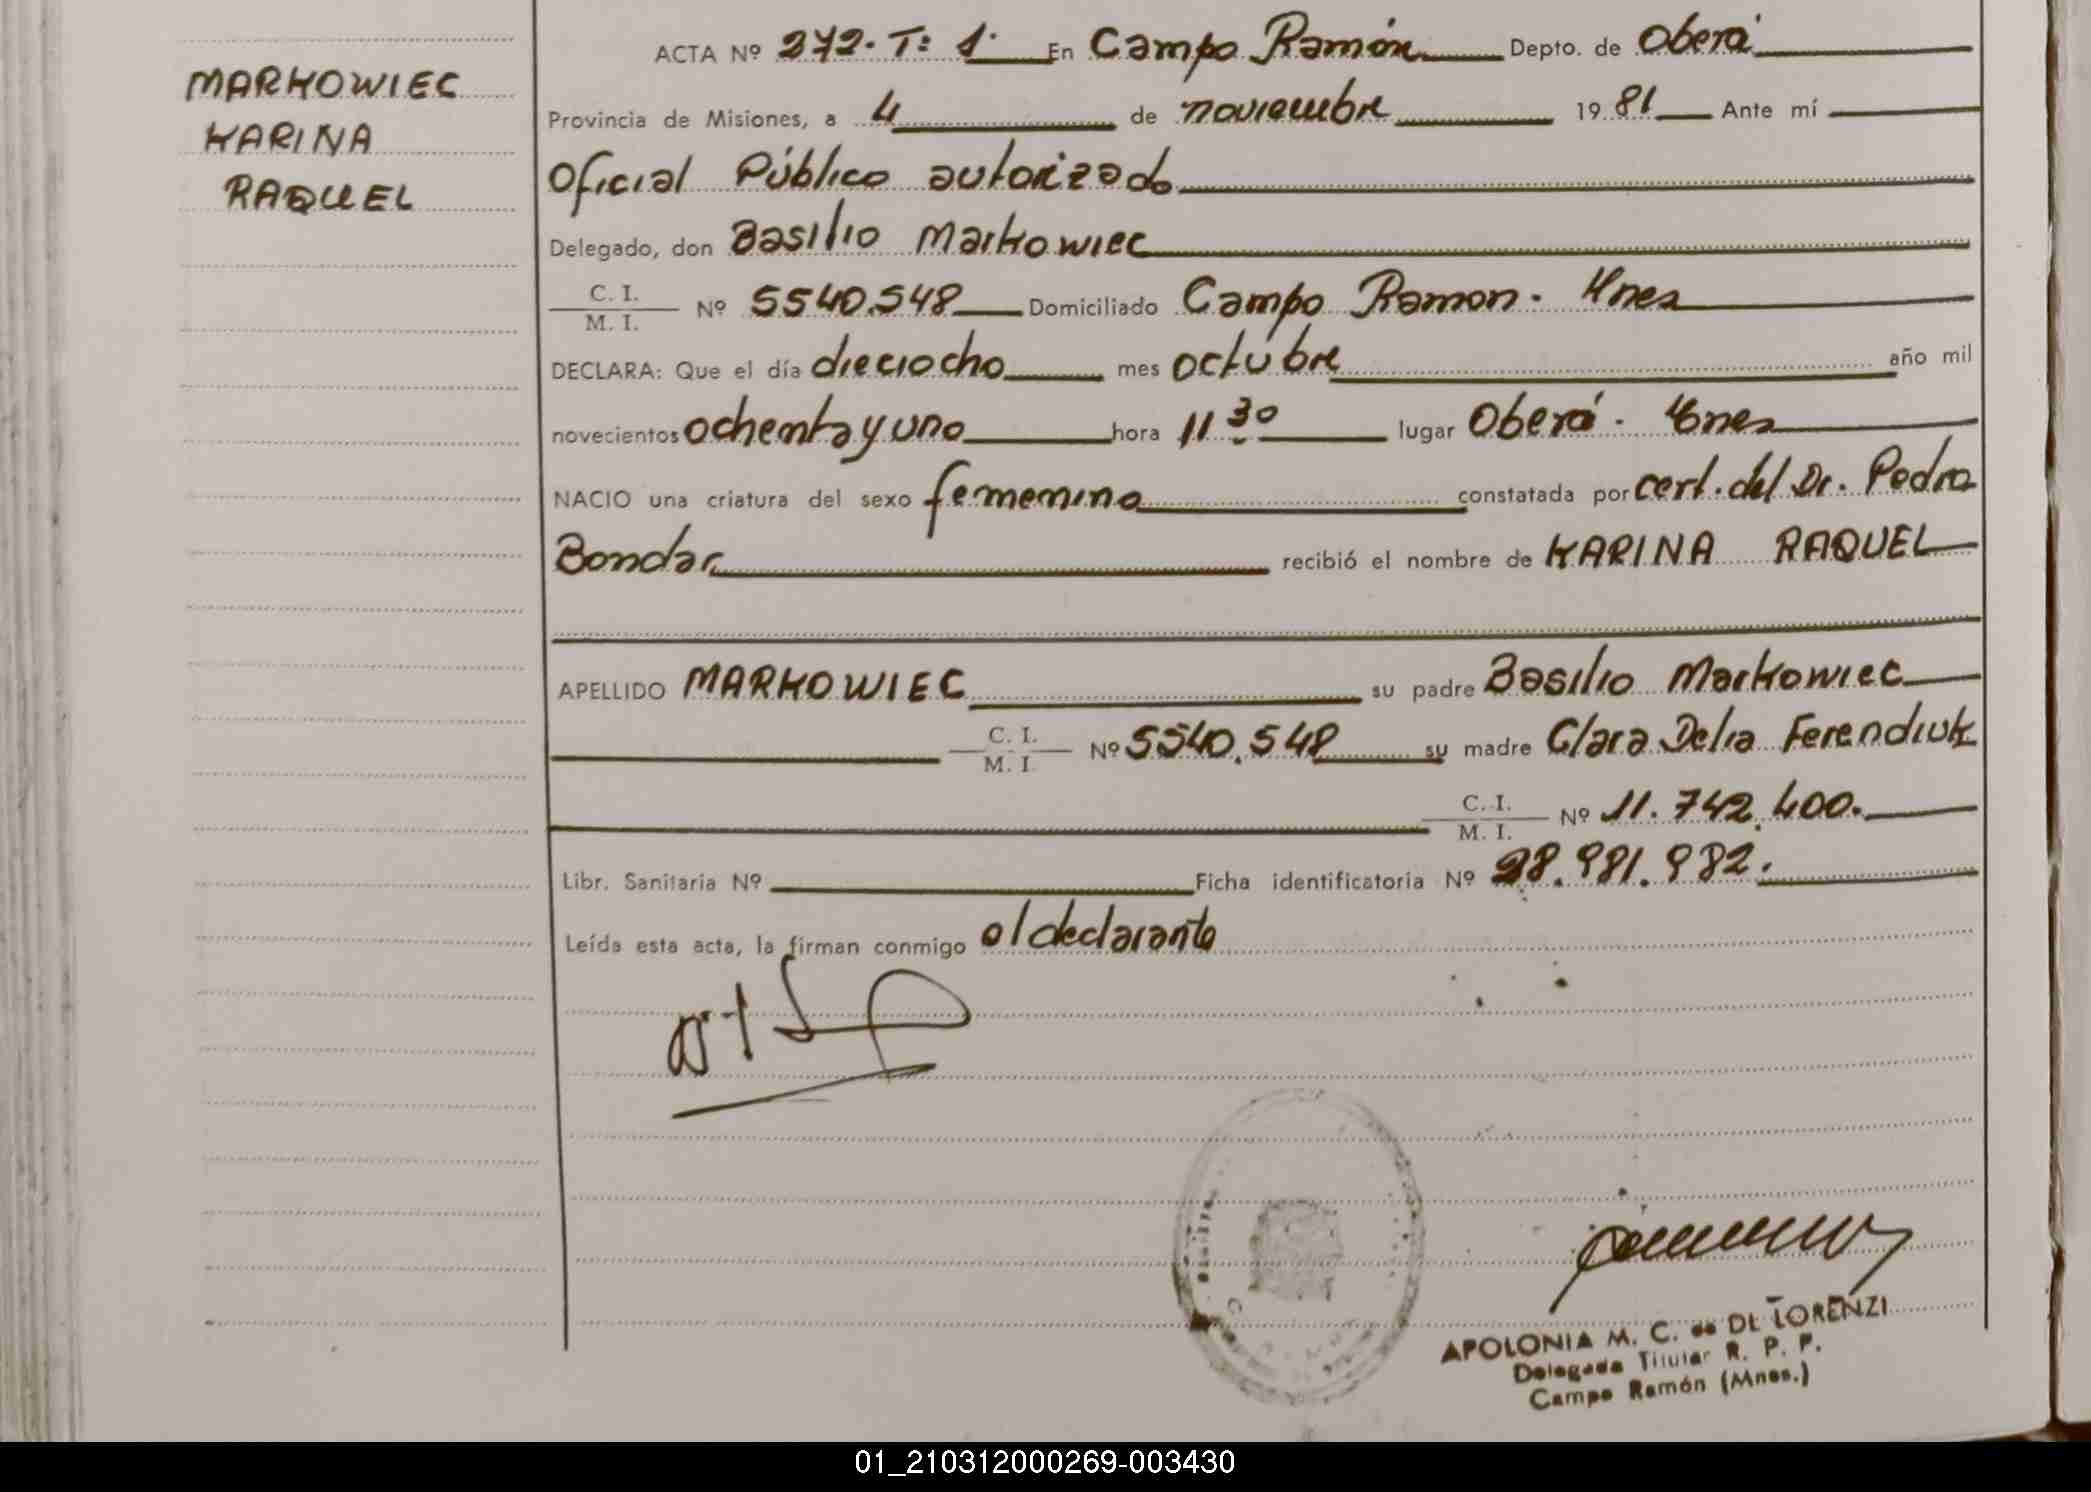 MARKOWIEC
KARINA
RAQUEL
ACTA Nº 272. T: 1· En Campo Ramón Depto. de Oberá
Provincia de Misiones, a 4 de noviembre 1981 Ante mí
Oficial Público autorizado
Delegado, don Basilio Markowiec
C. I.
M. I. Nº 5540.548 Domiciliado Campo Ramon. Mnes
DECLARA: Que el día dieciocho mes octubre año mil
novecientos ochenta y uno hora 11 30 lugar Oberá. Mnes
NACIO una criatura del sexo femenino constatada por cert. del Dr. Pedro
Bondar recibió el nombre de KARINA RAQUEL
APELLIDO MARKOWIEC su padre Basilio Markowiec
C. I.
M. I. Nº 5540.548 su madre Clara Delia Ferendiuk
C. I.
M. I. Nº 11.742.400.
Libr. Sanitaria Nº Ficha identificatoria Nº 28.981.982.
Leída esta acta, la firman conmigo el declarante
APOLONIA M. C. de DE LORENZI
Delegada Titular R. P. P.
Campo Ramón (Mnes.)
01_210312000269-003430